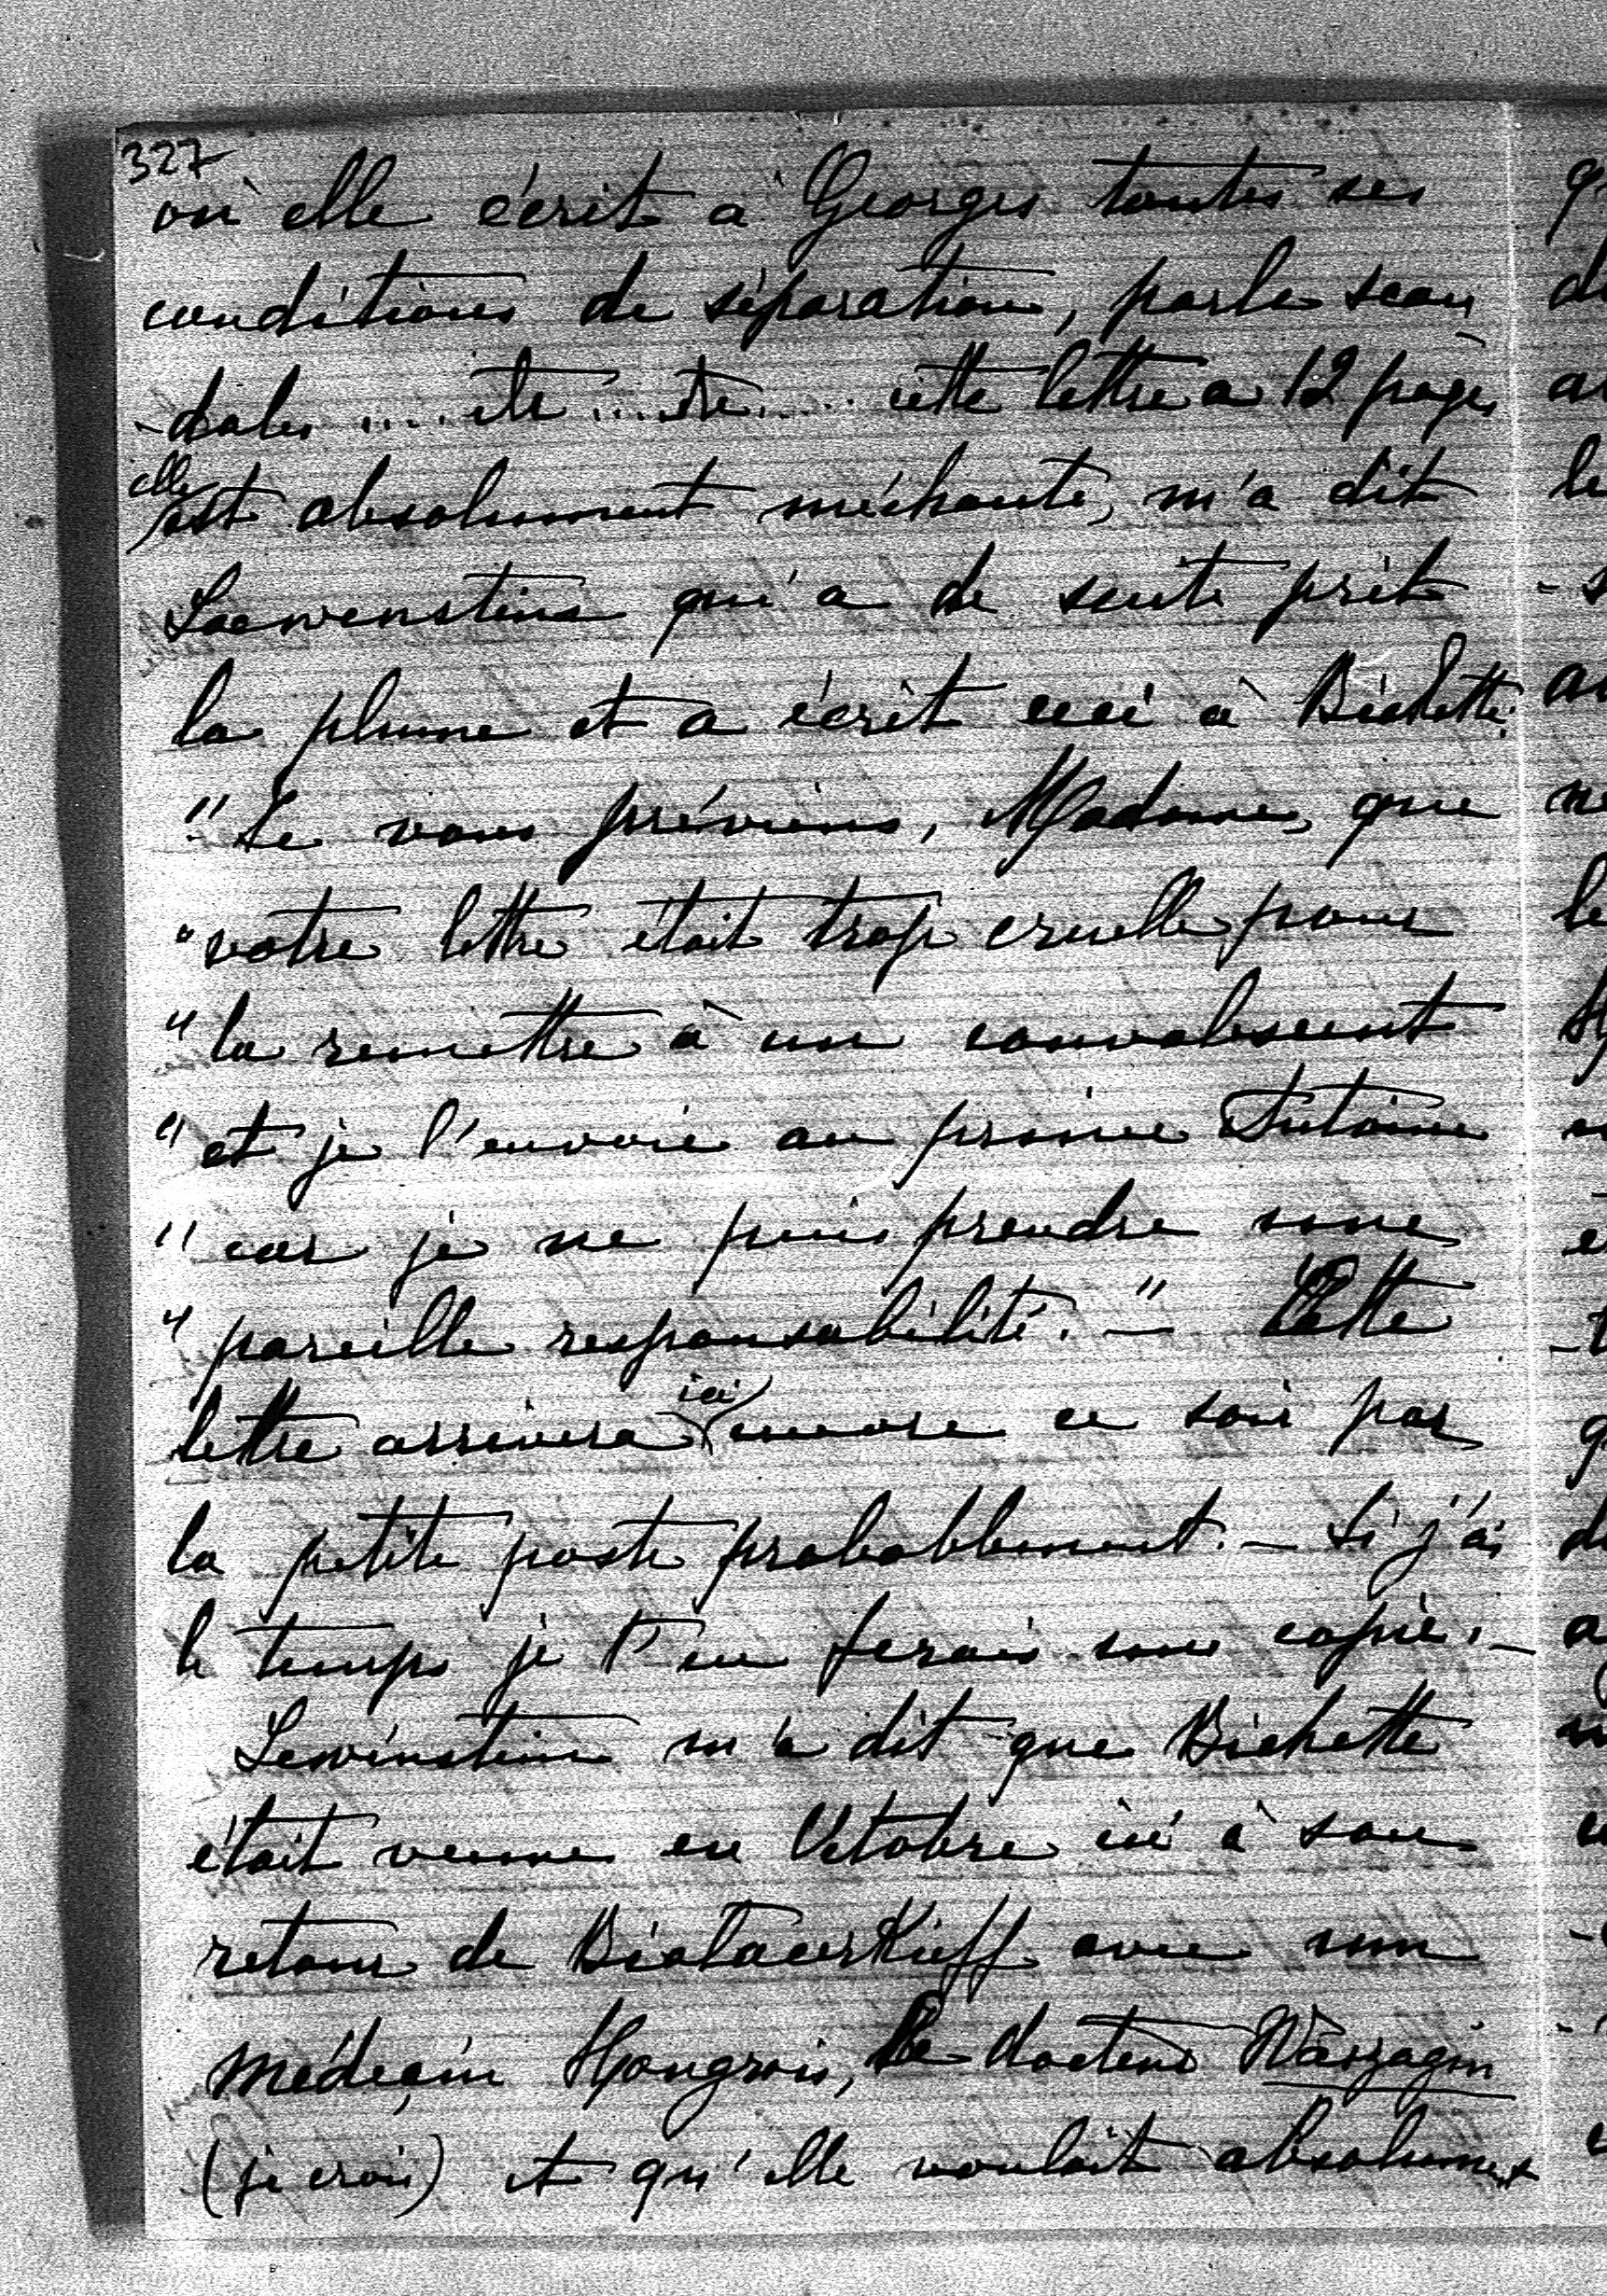 327
où elle écrit à Georges toutes ses
conditions de séparation, parle scan
-dales .... etc ... etc..... cette lettre a 12 pages
elle
est absolument méchante, m'a dit
Loewenstine qui a de suite prit
la plume et a écrit ceci à Bichette:
"Je vous préviens, Madame, que
"votre lettre était trop cruelle pour
"la remettre à un convalescent
"et je l'envoie au prince Antoine
"car je ne puis prendre une
"pareille responsabilité. —" Cette
ici
lettre arrivera encore ce soir par
la petite poste probabblement. — Si j'ai
le temps je t'en ferais une copie. —
Lewinstine m'a dit que Bichette
était venue en Octobre ici à son
retour de Biolacerkieff avec un
médecin Hongrois, le docteur
(je crois) et qu'elle voulait absolument